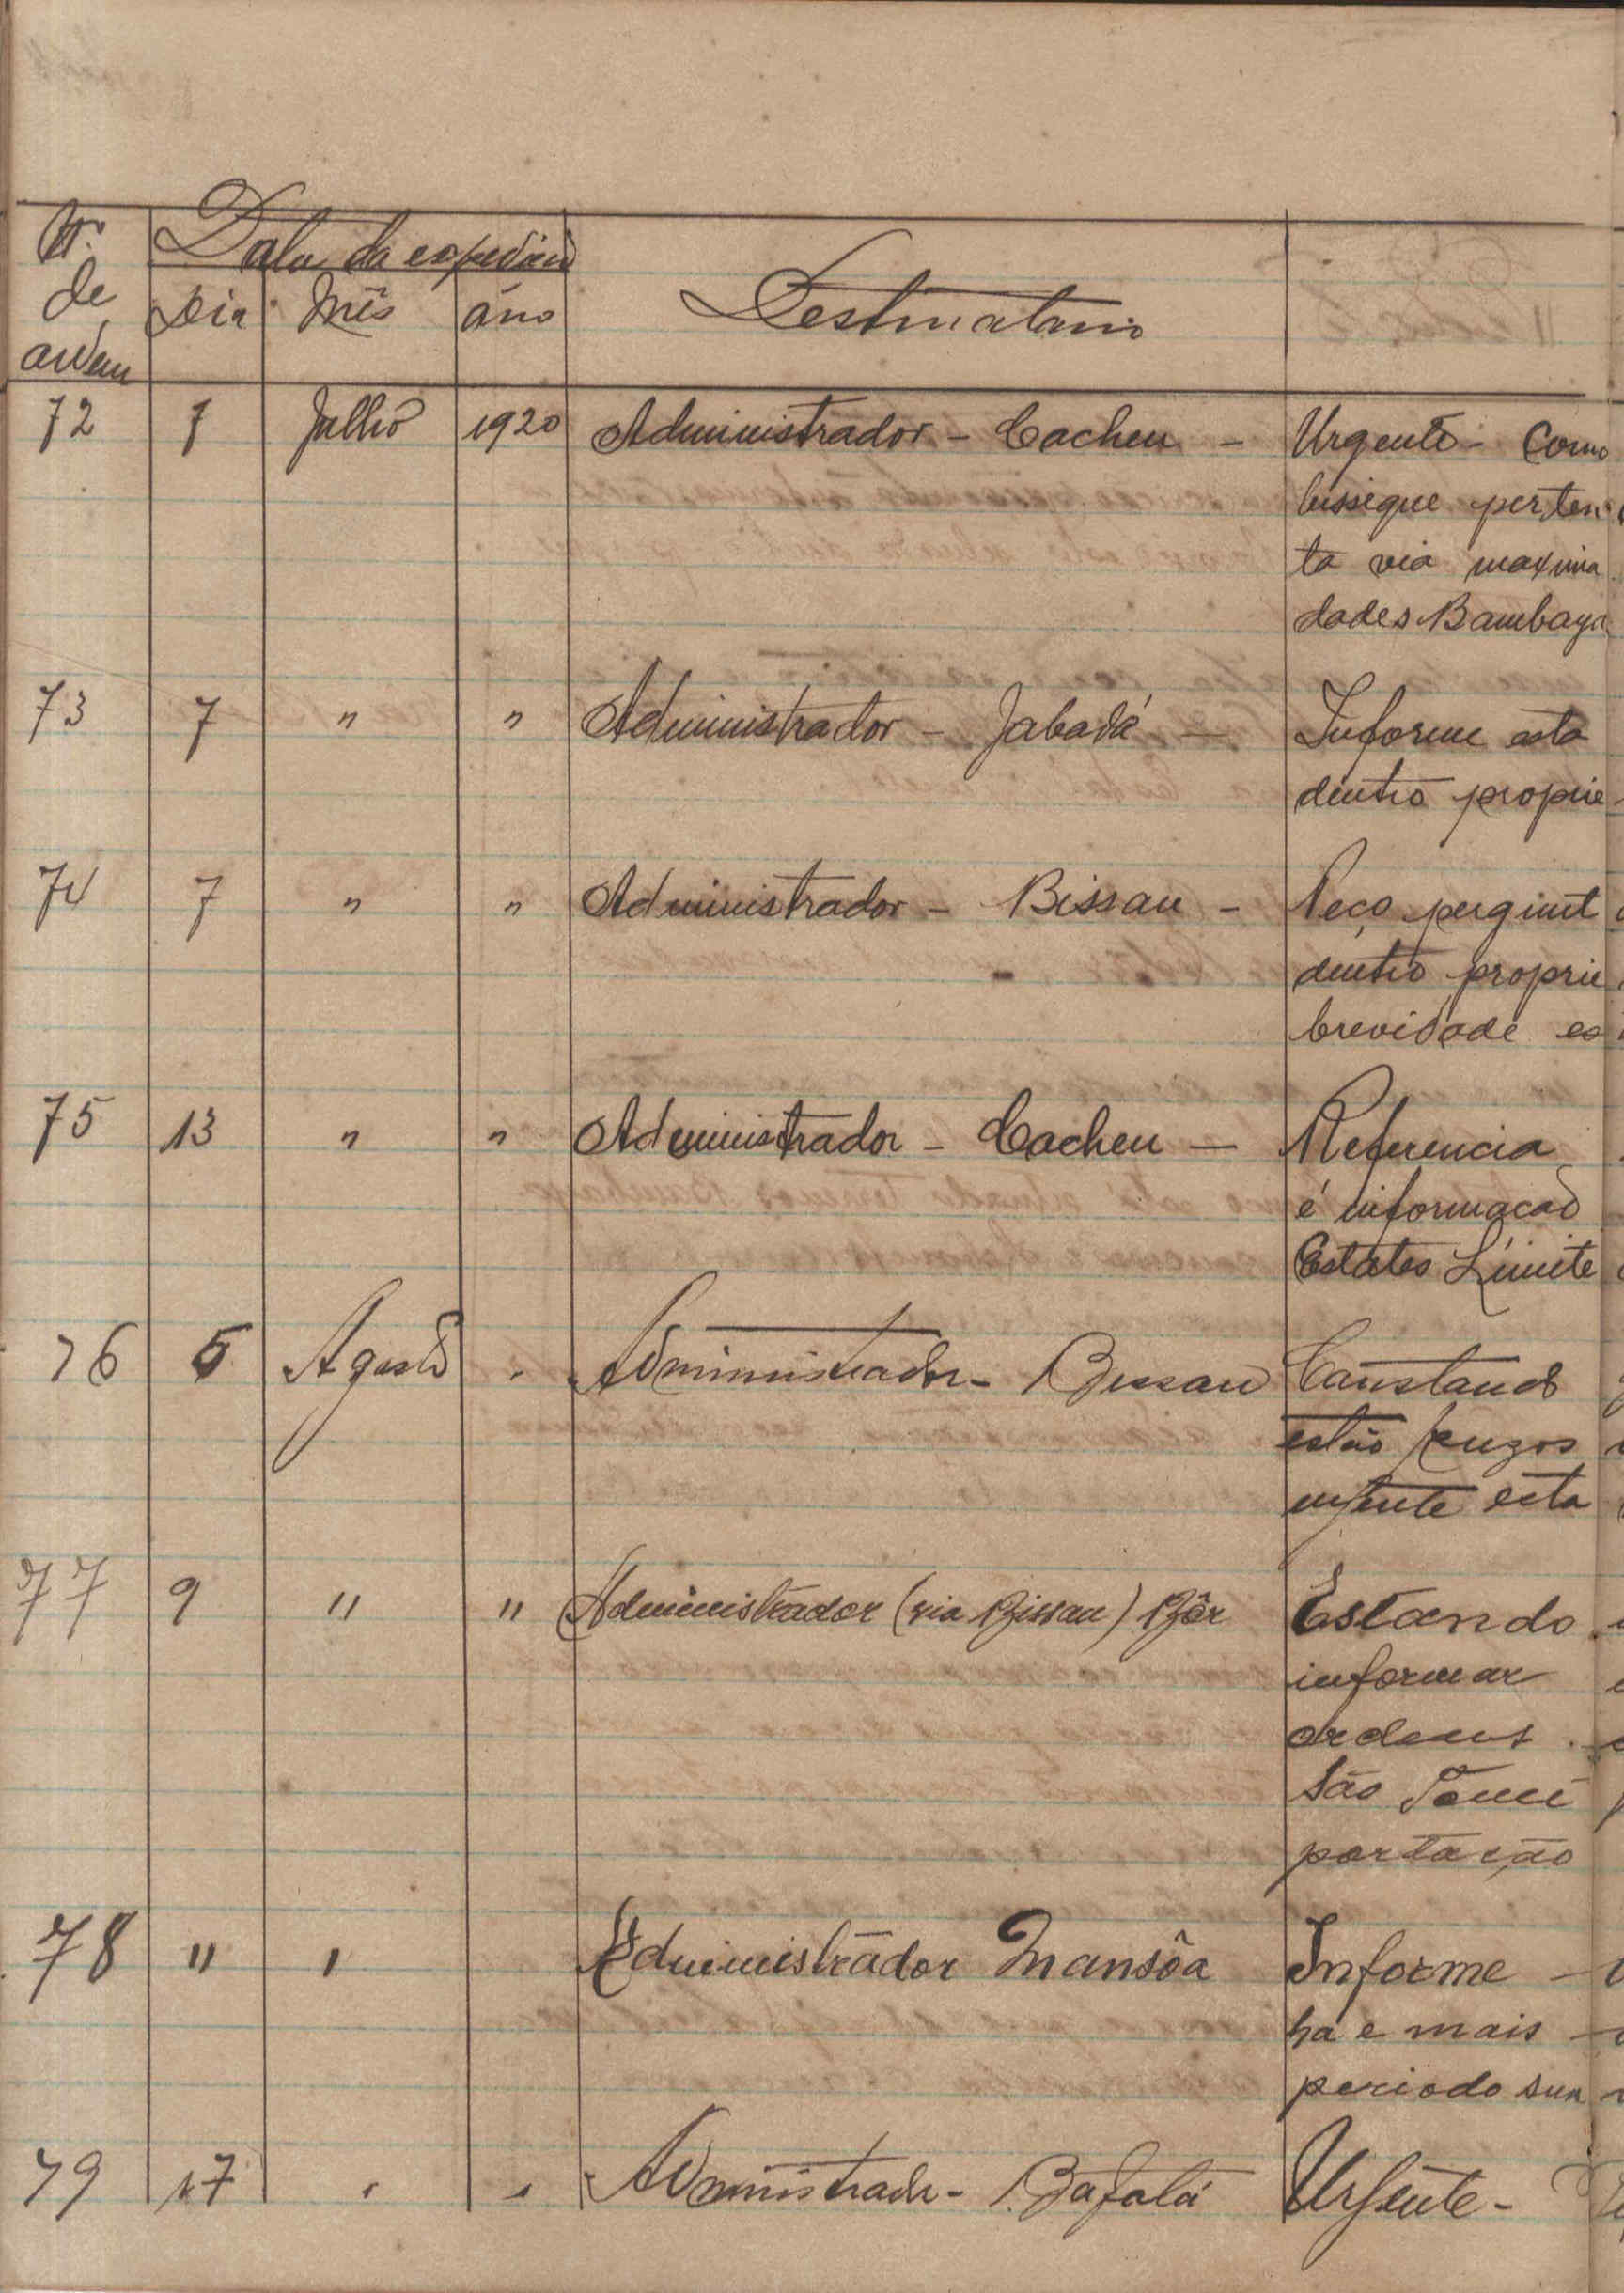 Nº Data da expedição
de Dia Mês áno Destinatario
ordem
72 7 Julho 1920 Administrador - Cacheu - Urgente - Como
bissique perten
ta via maxima
dades Bambaya
73 7 " " Administrador - Jabadá - Informe esta
dentro proprie
74 7 " " Administrador - Bissau - Peço pergunt
dentro proprie
brevidade es
75 13 " " Administrador - Cacheu - Referencia
é informação
Estates Limite
76 5 Agosto " Administrador - Bissau Constando
estão
urgente esta
77 9 " " Administrador (via Bissau) Bôr Estando
informar
ordens
São Tomé
portação
78 " " Administrador Mansôa Informe
ha e mais
periodo sua
79 17 " " Administrador - Bafatá Urgente -